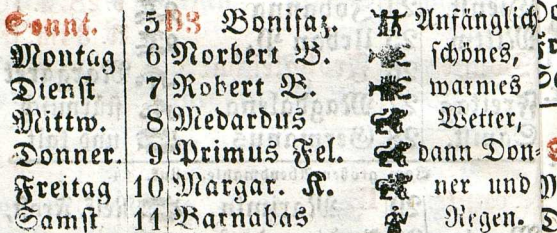 Sonnt. 5 B3 Bonifaz. Anfänglich
Montag 6 Norbert B. schönes,
Dienst 7 Robert B. warmes
Mittw. 8 Medardus Wetter,
Donner. 9 Primus Fel. dann Don-
Freitag 10 Margar. K. ner und
Samst 11 Barnabas Regen.